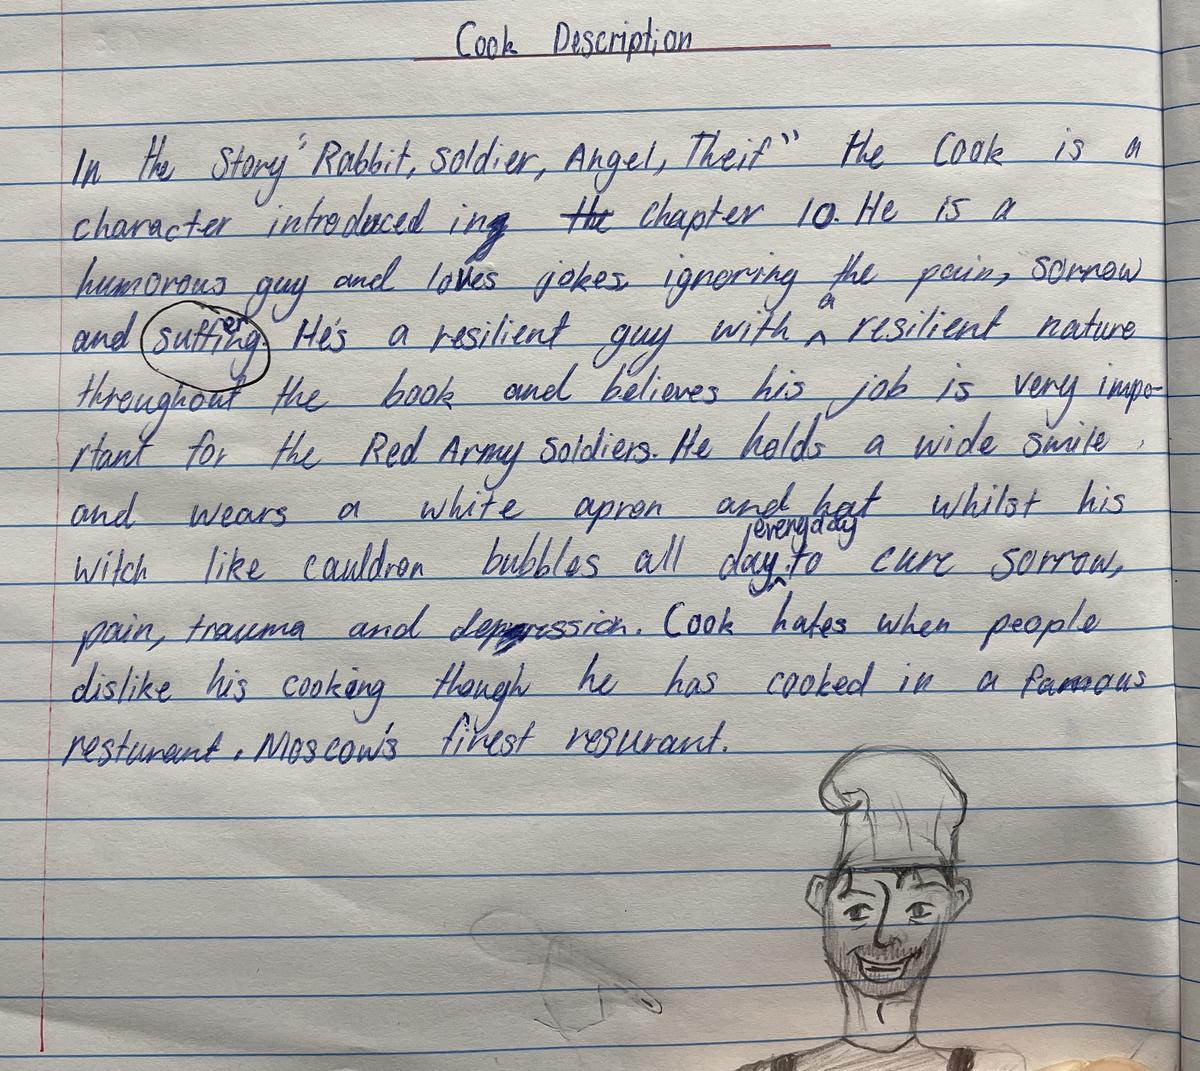 Cook Description
In the Story "Rabbit, Soldier, Angel, Theif" the Cook is a
character introduced in the chapter 10. He is a
humorous guy and loves jokes ignoring the pain, sorrow
and suffering. He's a resilient guy with a resilient nature
throughout the book and believes his job is very impo-
rtant for the Red Army Soldiers. He holds a wide smile
and wears a white apron and hat whilst his
witch like cauldron bubbles all day everyday to cure sorrow,
pain, trauma and depression. Cook hates when people
dislike his cooking though he has cooked in a famous
resturant, Moscow's finest resurant.